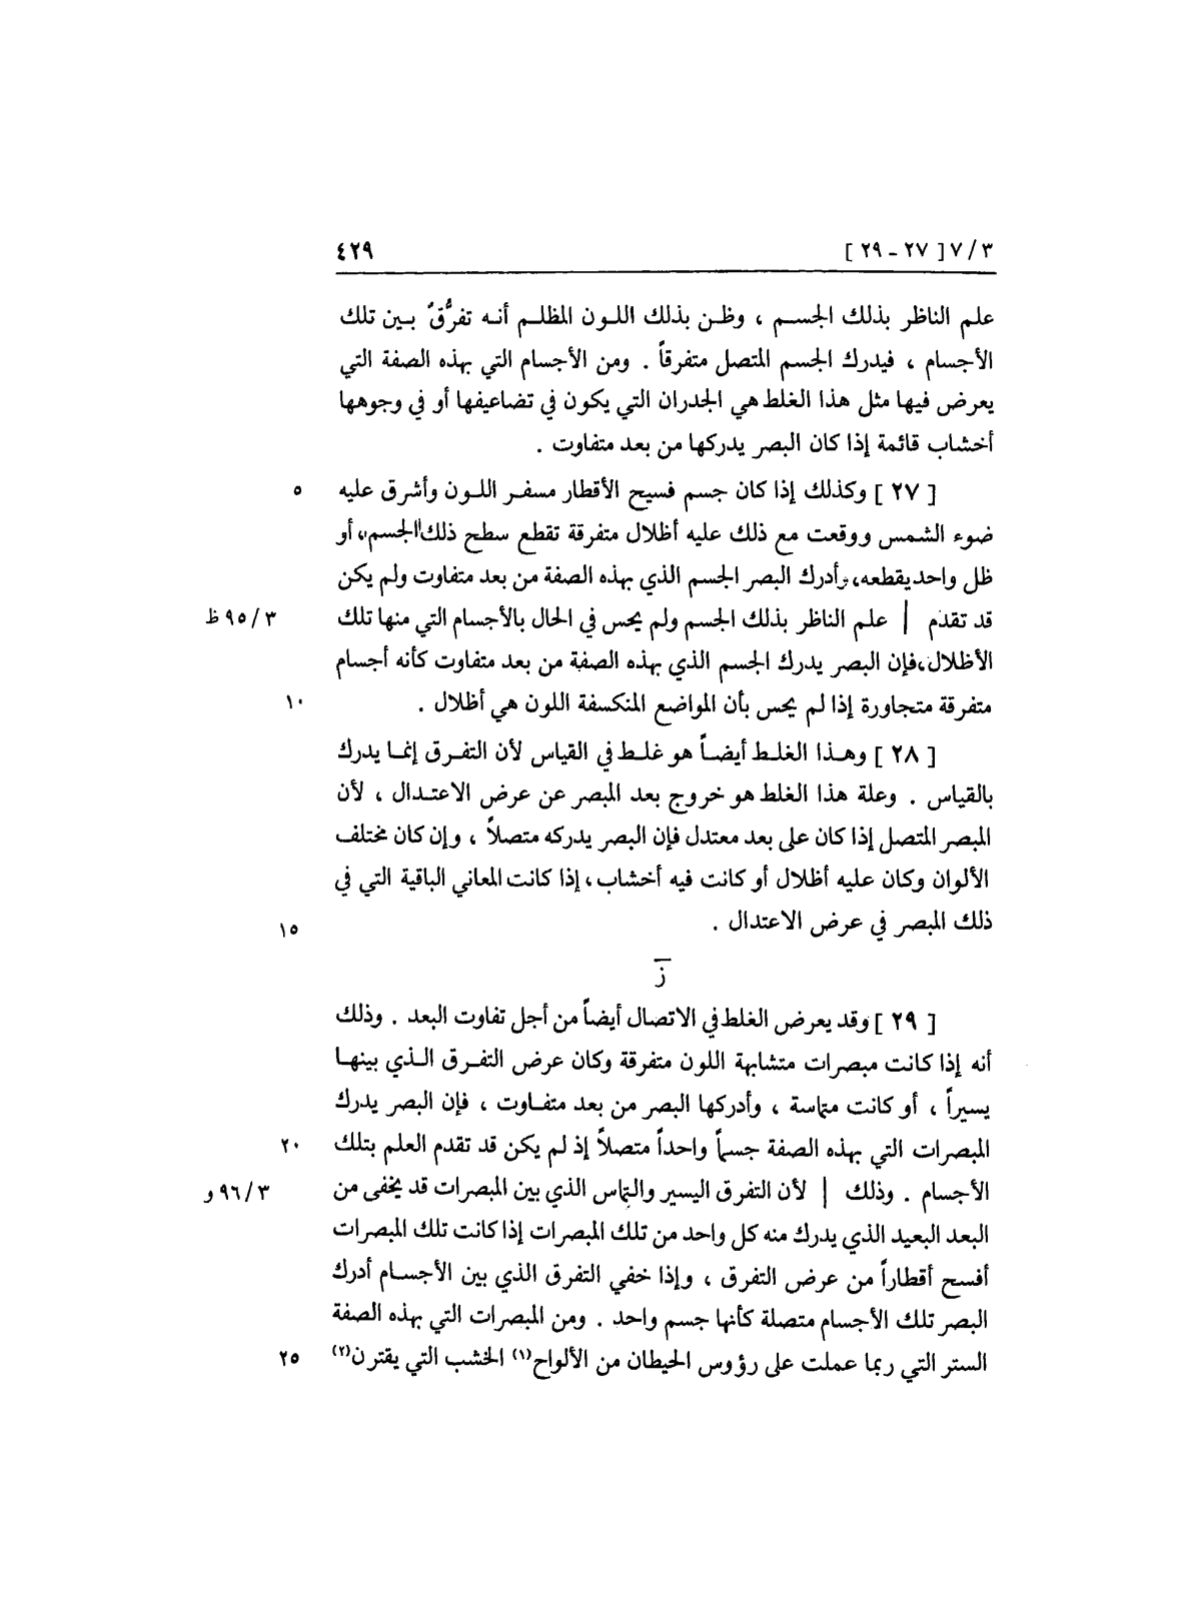 ٣/ ٧ [ ٢٧ - ٢٩ ]
٤٢٩
علم الناظر بذلك الجسم ، وظن بذلك اللون المظلم أنه تفرُّقٌ بين تلك
الأجسام ، فيدرك الجسم المتصل متفرقاً . ومن الأجسام التي بهذه الصفة التي
يعرض فيها مثل هذا الغلط هي الجدران التي يكون في تضاعيفها أو في وجوهها
أخشاب قائمة إذا كان البصر يدركها من بعد متفاوت .
[ ٢٧ ] وكذلك إذا كان جسم فسيح الأقطار مسفر اللون وأشرق عليه ٥
ضوء الشمس ووقعت مع ذلك عليه أظلال متفرقة تقطع سطح ذلك الجسم، أو
ظل واحد يقطعه، وأدرك البصر الجسم الذي بهذه الصفة من بعد متفاوت ولم يكن
قد تقدم | علم الناظر بذلك الجسم ولم يحس في الحال بالأجسام التي منها تلك ٣/ ٩٥ ظ
الأظلال، فإن البصر يدرك الجسم الذي بهذه الصفة من بعد متفاوت كأنه أجسام
متفرقة متجاورة إذا لم يحس بأن المواضع المنكسفة اللون هي أظلال . ١٠
[ ٢٨ ] وهذا الغلط أيضاً هو غلط في القياس لأن التفرق إنما يدرك
بالقياس . وعلة هذا الغلط هو خروج بعد المبصر عن عرض الاعتدال ، لأن
المبصر المتصل إذا كان على بعد معتدل فإن البصر يدركه متصلاً ، وإن كان مختلف
الألوان وكان عليه أظلال أو كانت فيه أخشاب، إذا كانت المعاني الباقية التي في
ذلك المبصر في عرض الاعتدال . ١٥
ز
[ ٢٩ ] وقد يعرض الغلط في الاتصال أيضاً من أجل تفاوت البعد . وذلك
أنه إذا كانت مبصرات متشابهة اللون متفرقة وكان عرض التفرق الذي بينها
يسيراً ، أو كانت متماسة ، وأدركها البصر من بعد متفاوت ، فإن البصر يدرك
المبصرات التي بهذه الصفة جسماً واحداً متصلاً إذ لم يكن قد تقدم العلم بتلك ٢٠
الأجسام . وذلك | لأن التفرق اليسير والتماس الذي بين المبصرات قد يخفى من ٣/ ٩٦ و
البعد البعيد الذي يدرك منه كل واحد من تلك المبصرات إذا كانت تلك المبصرات
أفسح أقطاراً من عرض التفرق ، وإذا خفي التفرق الذي بين الأجسام أدرك
البصر تلك الأجسام متصلة كأنها جسم واحد . ومن المبصرات التي بهذه الصفة
الستر التي ربما عملت على رؤوس الحيطان من الألواح(١) الخشب التي يقترن(٢) ٢٥